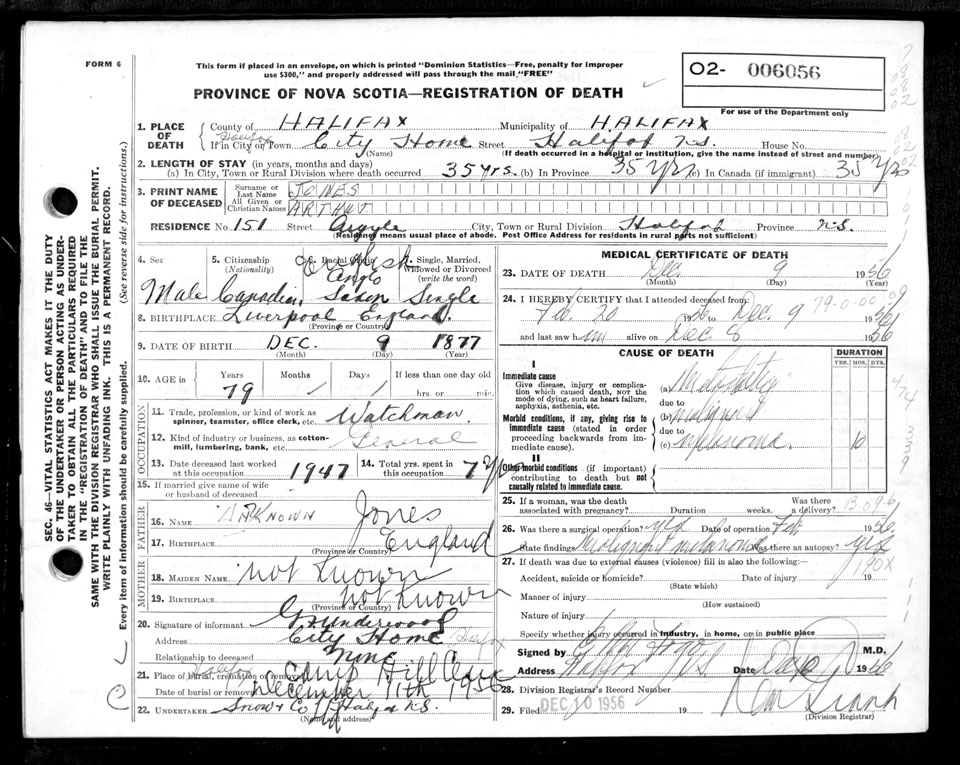 FORM 6
This form if placed in an envelope, on which is printed "Dominion Statistics—Free, penalty for improper
use $300," and properly addressed will pass through the mail "FREE"
O2- 006056
PROVINCE OF NOVA SCOTIA—REGISTRATION OF DEATH
For use of the Department only
1. PLACE OF DEATH
County of HALIFAX Municipality of HALIFAX
If in City or Town Halifax City Home Street Halifax N.S. House No.
(Name) (If death occurred in a hospital or institution, give the name instead of street and number)
2. LENGTH OF STAY (in years, months and days)
(a) In City, Town or Rural Division where death occurred 35 yrs. (b) In Province 35 yrs (c) In Canada (if immigrant) 35 yrs
3. PRINT NAME OF DECEASED
Surname or Last Name JONES
All Given or Christian Names ARTHUR
RESIDENCE No. 151 Street Argyle City, Town or Rural Division Halifax Province N.S.
(Residence means usual place of abode. Post Office Address for residents in rural parts not sufficient)
4. Sex Male
5. Citizenship (Nationality) Canadian
6. Racial Origin English Anglo Saxon
7. Single, Married, Widowed or Divorced (write the word) Single
8. BIRTHPLACE Liverpool England.
(Province or Country)
9. DATE OF BIRTH DEC. 9 1877
(Month) (Day) (Year)
10. AGE in Years Months Days If less than one day old
79 / / hrs. or min.
OCCUPATION
11. Trade, profession, or kind of work as spinner, teamster, office clerk, etc. Watchman
12. Kind of industry or business, as cotton-mill, lumbering, bank, etc. General
13. Date deceased last worked at this occupation 1947
14. Total yrs. spent in this occupation 7 yrs
15. If married give name of wife or husband of deceased
FATHER
16. NAME UNKNOWN Jones
17. BIRTHPLACE England
(Province or Country)
MOTHER
18. MAIDEN NAME not known
19. BIRTHPLACE not known
(Province or Country)
20. Signature of informant G. Underwood
Address City Home Halifax
Relationship to deceased None
21. Place of burial, cremation or removal Halifax Camp Hill Cem
Date of burial or removal December 11th 1956
22. UNDERTAKER Snow & Co Halifax N.S.
(Name and address)
MEDICAL CERTIFICATE OF DEATH
23. DATE OF DEATH Dec. 9 1956
(Month) (Day)
24. I HEREBY CERTIFY that I attended deceased from:
Feb. 20 1956 to Dec. 9 1956
and last saw him alive on Dec 8 1956
CAUSE OF DEATH
DURATION
YRS. MOS. DYS.
I
Immediate cause
Give disease, injury or complication which caused death, NOT the mode of dying, such as heart failure, asphyxia, asthenia, etc.
(a)
due to
Morbid conditions, if any, giving rise to immediate cause (stated in order proceeding backwards from immediate cause).
(b) malignant
due to
(c) melanoma. 10
II
Other morbid conditions (if important) contributing to death but not causally related to immediate cause.
25. If a woman, was the death associated with pregnancy? Duration weeks. Was there a delivery?
26. Was there a surgical operation? yes Date of operation Feb 1956
State findings Malignant melanoma Was there an autopsy? yes
27. If death was due to external causes (violence) fill in also the following:—
190X
Accident, suicide or homicide? Date of injury 19
(State which)
Manner of injury
(How sustained)
Nature of injury
Specify whether injury occurred in industry, in home, or in public place
Signed by M.D.
Address Halifax N.S. Date Dec 1956
28. Division Registrar's Record Number
29. Filed DEC 10 1956 19
(Division Registrar)
SEC. 46—VITAL STATISTICS ACT MAKES IT THE DUTY
OF THE UNDERTAKER OR PERSON ACTING AS UNDER-
TAKER TO OBTAIN ALL THE PARTICULARS REQUIRED
IN THE "REGISTRATION OF DEATH" AND TO FILE THE
SAME WITH THE DIVISION REGISTRAR WHO SHALL ISSUE THE BURIAL PERMIT.
WRITE PLAINLY WITH UNFADING INK. THIS IS A PERMANENT RECORD.
Every item of information should be carefully supplied. (See reverse side for instructions.)